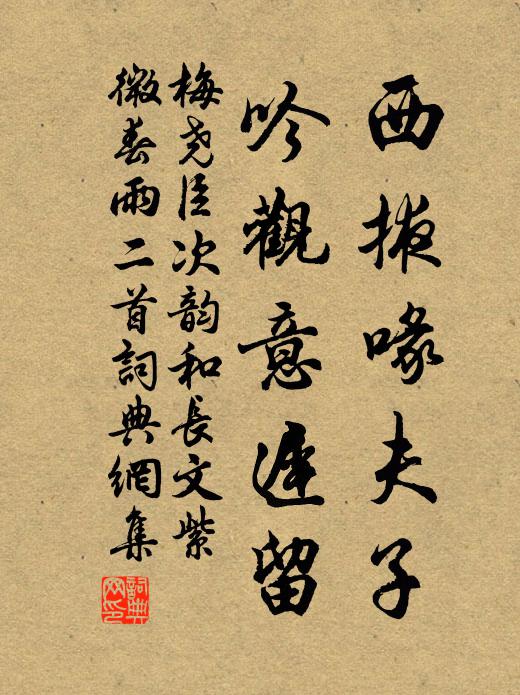 西掖喙夫子
吟觀意遲留
梅尧臣次韵和長文紫
微春雨二首詞典網集
詞典网印